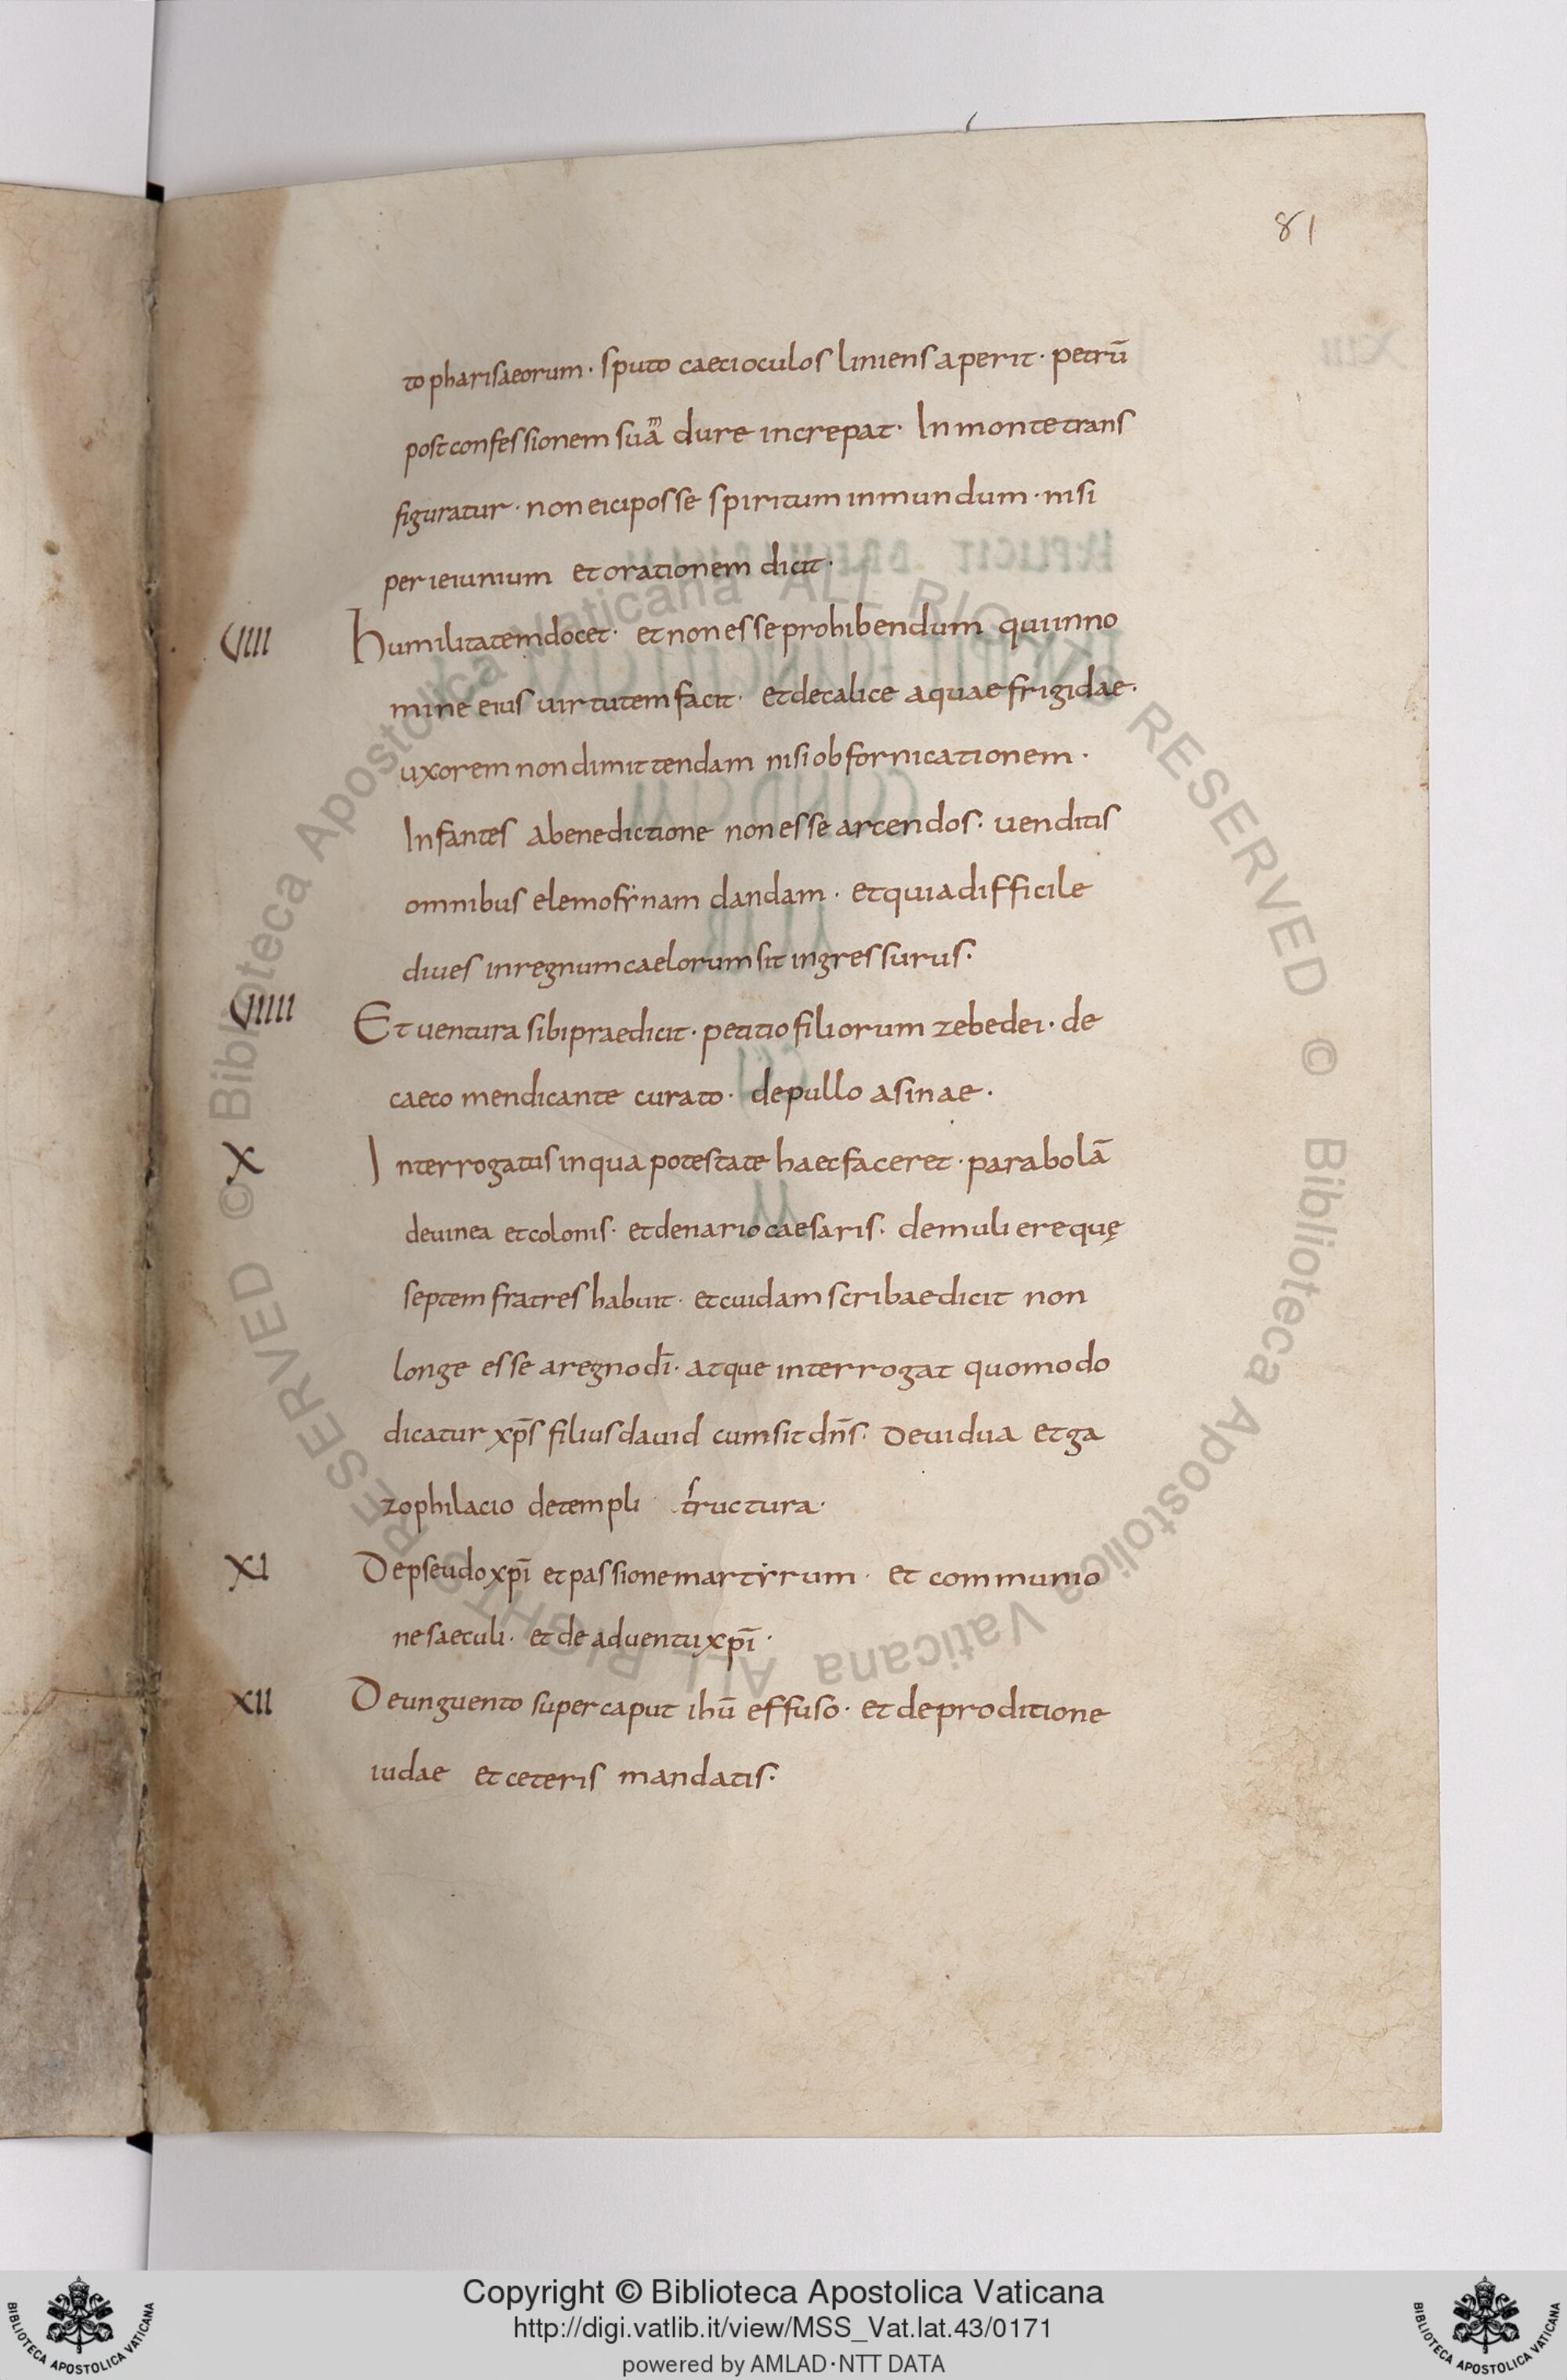 81
to pharisaeorum · sputo caeci oculos liniens aperit · petrū
post confessionem suā dure increpat · In monte trans
figuratur · non eici posse spiritum inmundum · nisi
per ieiunium et orationem dicit ·
VIIII humilitatem docet · et non esse prohibendum qui inno
mine eius uirtutem facit · et de calice aquae frigidae ·
uxorem non dimittendam nisi ob fornicationem ·
Infantes a benedictione non esse arcendos · uenditis
omnibus elemosẏnam dandam · et quia difficile
diues in regnum caelorum sit ingressurus ·
VIIII Et uentura sibi praedicit · petitio filiorum zebedei · de
caeco mendicante curato · de pullo asinae ·
X Interrogatus in qua potestate haec faceret · parabolā
de uinea et colonis · et denario caesaris · de muliere quę
septem fratres habuit · et cuidam scribae dicit non
longe esse a regno dī · atque interrogat quomodo
dicatur xp̄s filius dauid cum sit dn̄s · De uidua et ga
zophilacio de templi structura ·
XI De pseudo xpī et passione martẏrum · et communio
ne saeculi · et de aduentu xpī ·
XII De unguento super caput ihū effuso · et de proditione
iudae et ceteris mandatis ·
Copyright © Biblioteca Apostolica Vaticana
http://digi.vatlib.it/view/MSS_Vat.lat.43/0171
powered by AMLAD·NTT DATA
BIBLIOTECA APOSTOLICA VATICANA
BIBLIOTECA APOSTOLICA VATICANA
© Biblioteca Apostolica Vaticana ALL RIGHTS RESERVED
© Biblioteca Apostolica Vaticana ALL RIGHTS RESERVED